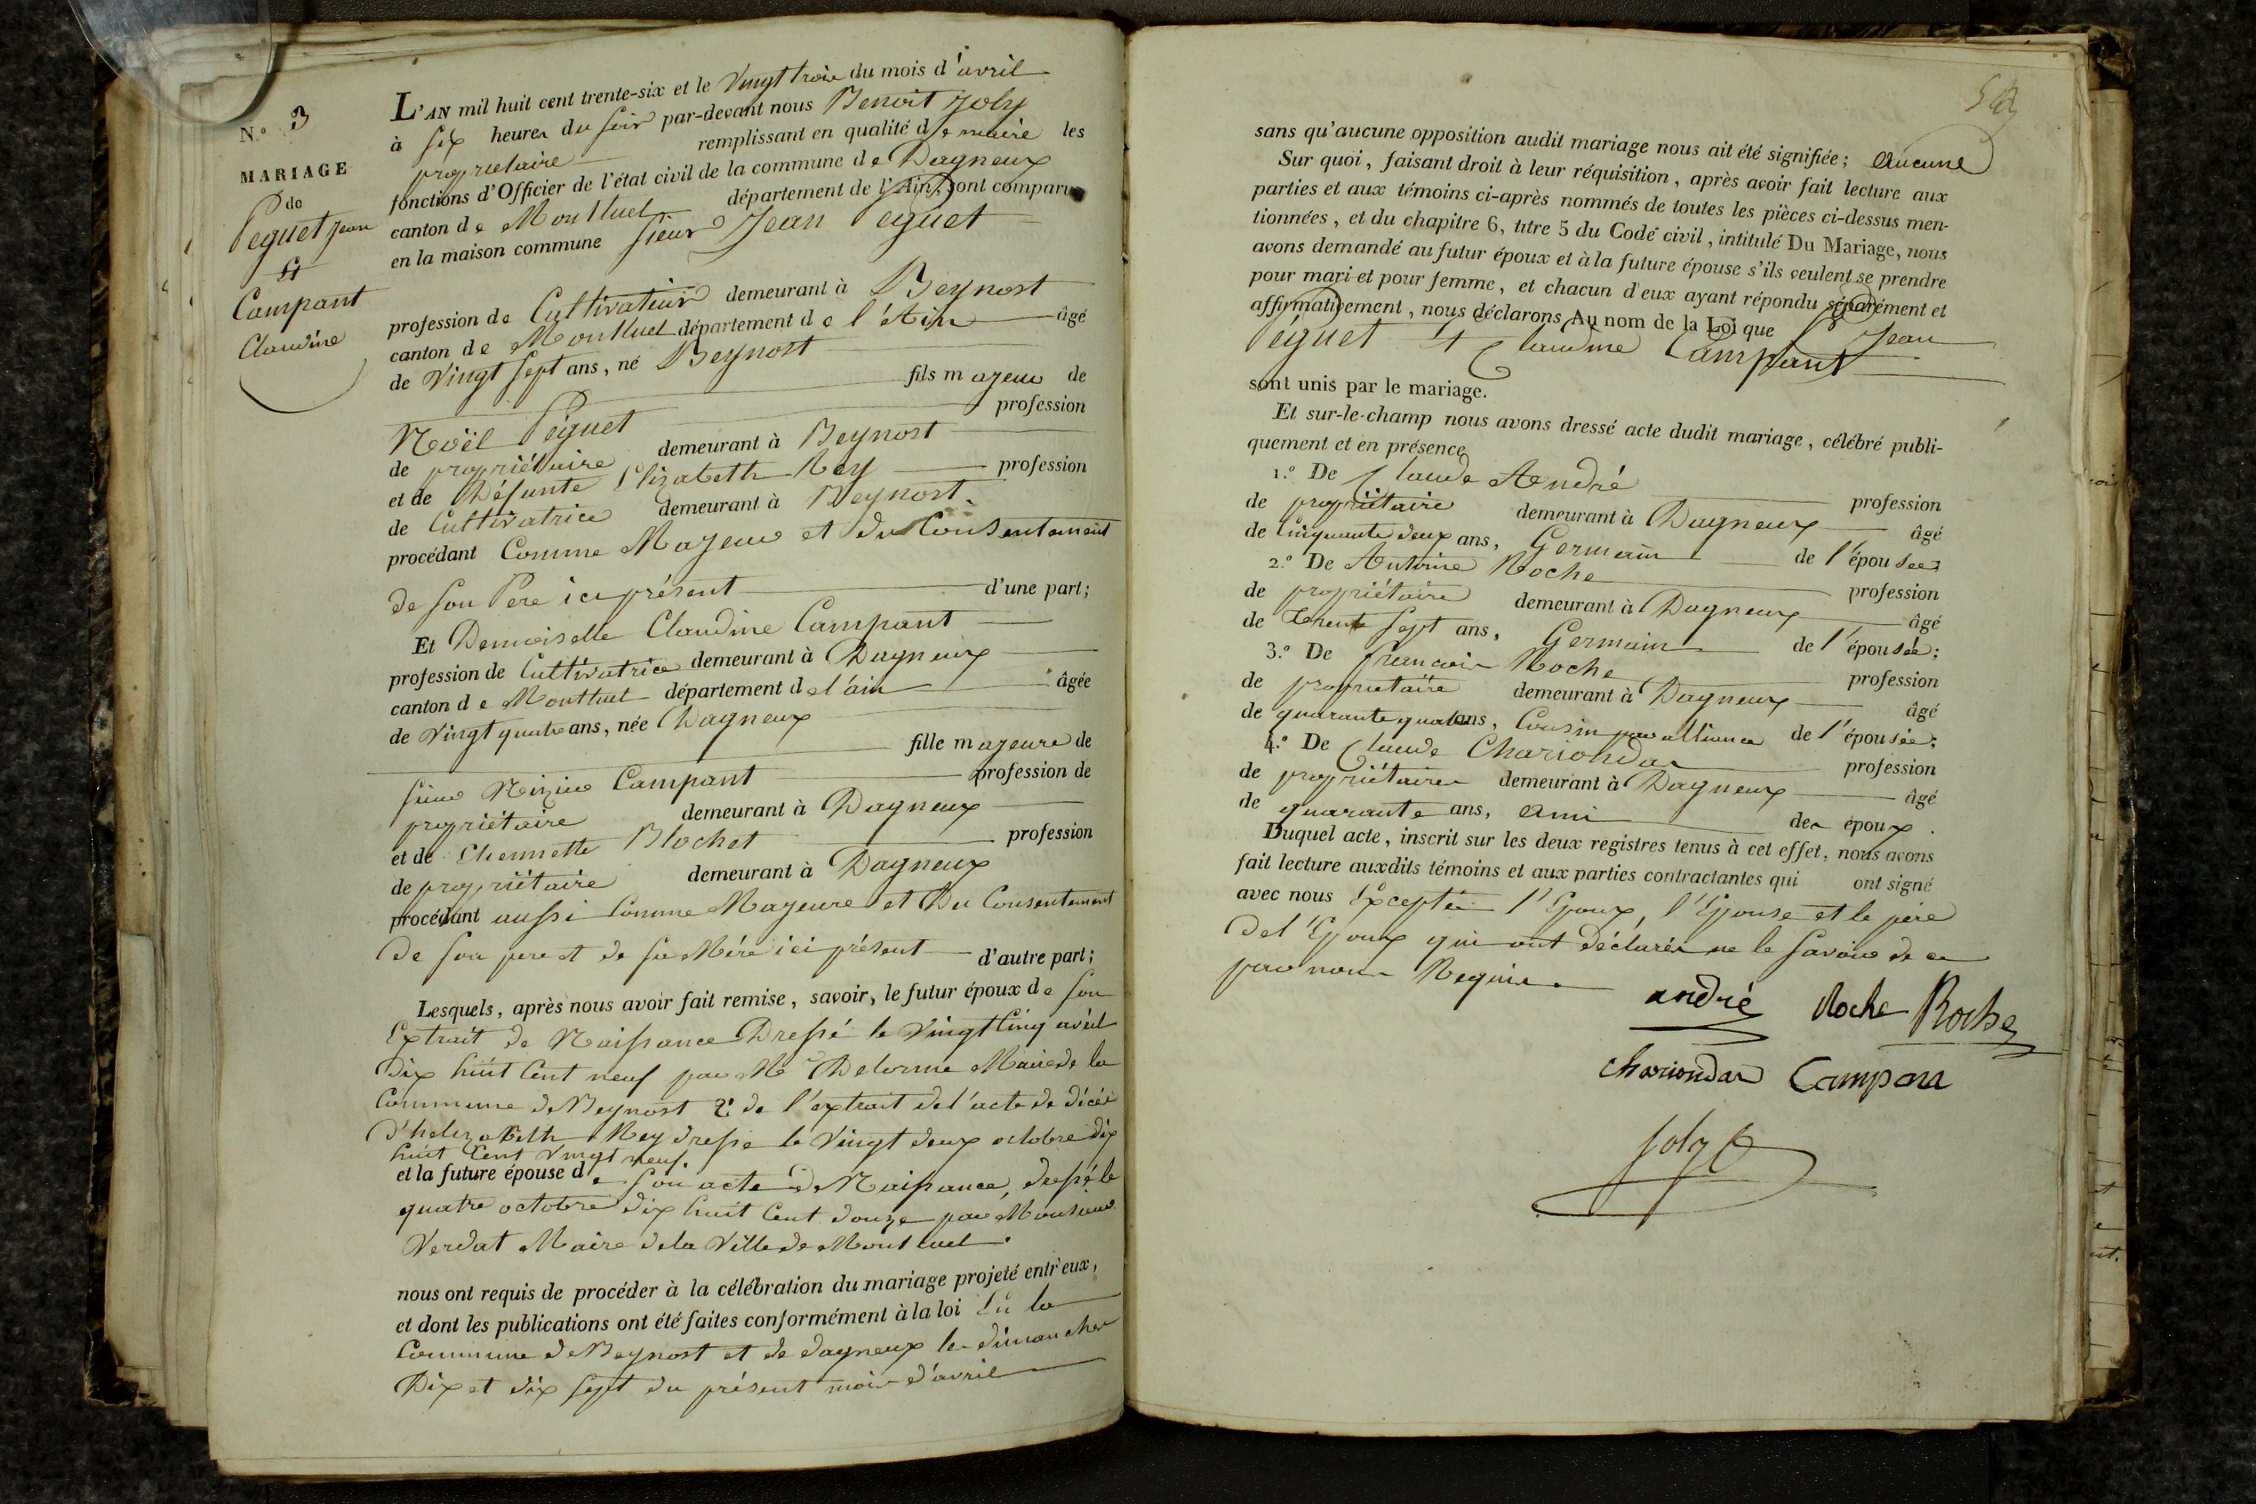 N.° 3
MARIAGE
de
Peguet Jean
Et
Campant
Claudine
L'AN mil huit cent trente-six et le Vingt trois du mois d'avril
à six heures du soir par-devant nous Benoit Joly
propriétaire remplissant en qualité de maire les
fonctions d'Officier de l'état civil de la commune de Dagneux
canton de Montluel département de l'Ain, sont comparus
en la maison commune sieur Jean Peguet
profession de Cultivateur demeurant à Beynost
canton de Montluel département de l'Ain âgé
de Vingt sept ans, né Beynost
fils majeur de
Noël Péguet profession
de propriétaire demeurant à Beynost
et de Défunte Elizabeth Rey profession
de Cultivatrice demeurant à Beynost.
procédant Comme Majeur et du Consentement
de son Pere ici présent d'une part;
Et Demoiselle Claudine Campant
profession de Cultivatrice demeurant à Dagneux
canton de Montluel département de l'ain âgée
de Vingt quatre ans, née Dagneux
fille majeure de
Campant profession de
propriétaire demeurant à Dagneux
et de Blochet profession
de propriétaire demeurant à Dagneux
procédant aussi Comme Majeure et Du Consentement
de son pere et de sa Mère ici présent d'autre part;
Lesquels, après nous avoir fait remise, savoir, le futur époux de son
Extrait de Naissance Dressé le Vingt Cinq avril
Dix huit Cent neuf par Mr Delorme Maire de la
Commune de Beynost 2° de l'extrait de l'acte de décès
d'helizabelth Rey dressé le Vingt deux octobre dix
huit Cent Vingt neuf
et la future épouse de son acte de Naissance, dressé le
quatre octobre dix huit Cent douze par Monsieur
Verdat Maire de la Ville de Montluel.
nous ont requis de procéder à la célébration du mariage projeté entr'eux,
et dont les publications ont été faites conformément à la loi En la
Commune de Beynost et de dagneux les dimanches
Dix et dix sept du présent mois d'avril
sans qu'aucune opposition audit mariage nous ait été signifiée; aucune
Sur quoi, faisant droit à leur réquisition, après avoir fait lecture aux
parties et aux témoins ci-après nommés de toutes les pièces ci-dessus men-
tionnées, et du chapitre 6, titre 5 du Code civil, intitulé Du Mariage, nous
avons demandé au futur époux et à la future épouse s'ils veulent se prendre
pour mari et pour femme, et chacun d'eux ayant répondu séparément et
affirmativement, nous déclarons Au nom de la Loi que Jean
Péguet Et Claudine Campant
sont unis par le mariage.
Et sur-le-champ nous avons dressé acte dudit mariage, célébré publi-
quement et en présence
1.° De Claude André profession
de propriétaire demeurant à Dagneux âgé
de Cinquante deux ans, Germain de l'épousée;
2.° De Antoine Roche profession
de propriétaire demeurant à Dagneux âgé
de Trente sept ans, Germain de l'épousée;
3.° De francois Roche profession
de propriétaire demeurant à Dagneux âgé
de quarante quatre ans, Cousin par alliance de l'épousée;
4.° De Claude Chariondar profession
de propriétaire demeurant à Dagneux âgé
de quarante ans, ami des époux.
Duquel acte, inscrit sur les deux registres tenus à cet effet, nous avons
fait lecture auxdits témoins et aux parties contractantes qui ont signé
avec nous Exceptés l'Epoux, l'Epouse et le père
de l'Epoux qui ont déclarés ne le savoir de ce
par nous Requis.
andré Roche Roche
chariondar Campan
Joly